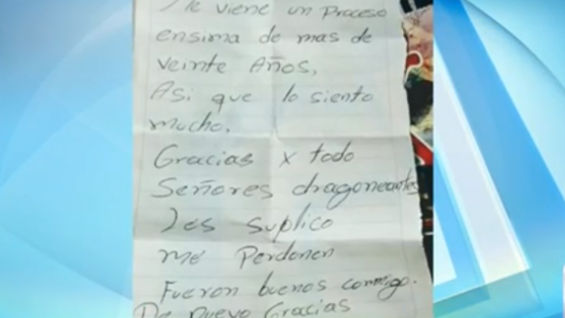 Me viene un Proceso
ensima de mas de
veinte Años,
Asi que lo siento
mucho,
Gracias x todo
Señores dragoneantes
les suplico
me Perdonen
Fueron buenos conmigo.
De nuevo Gracias